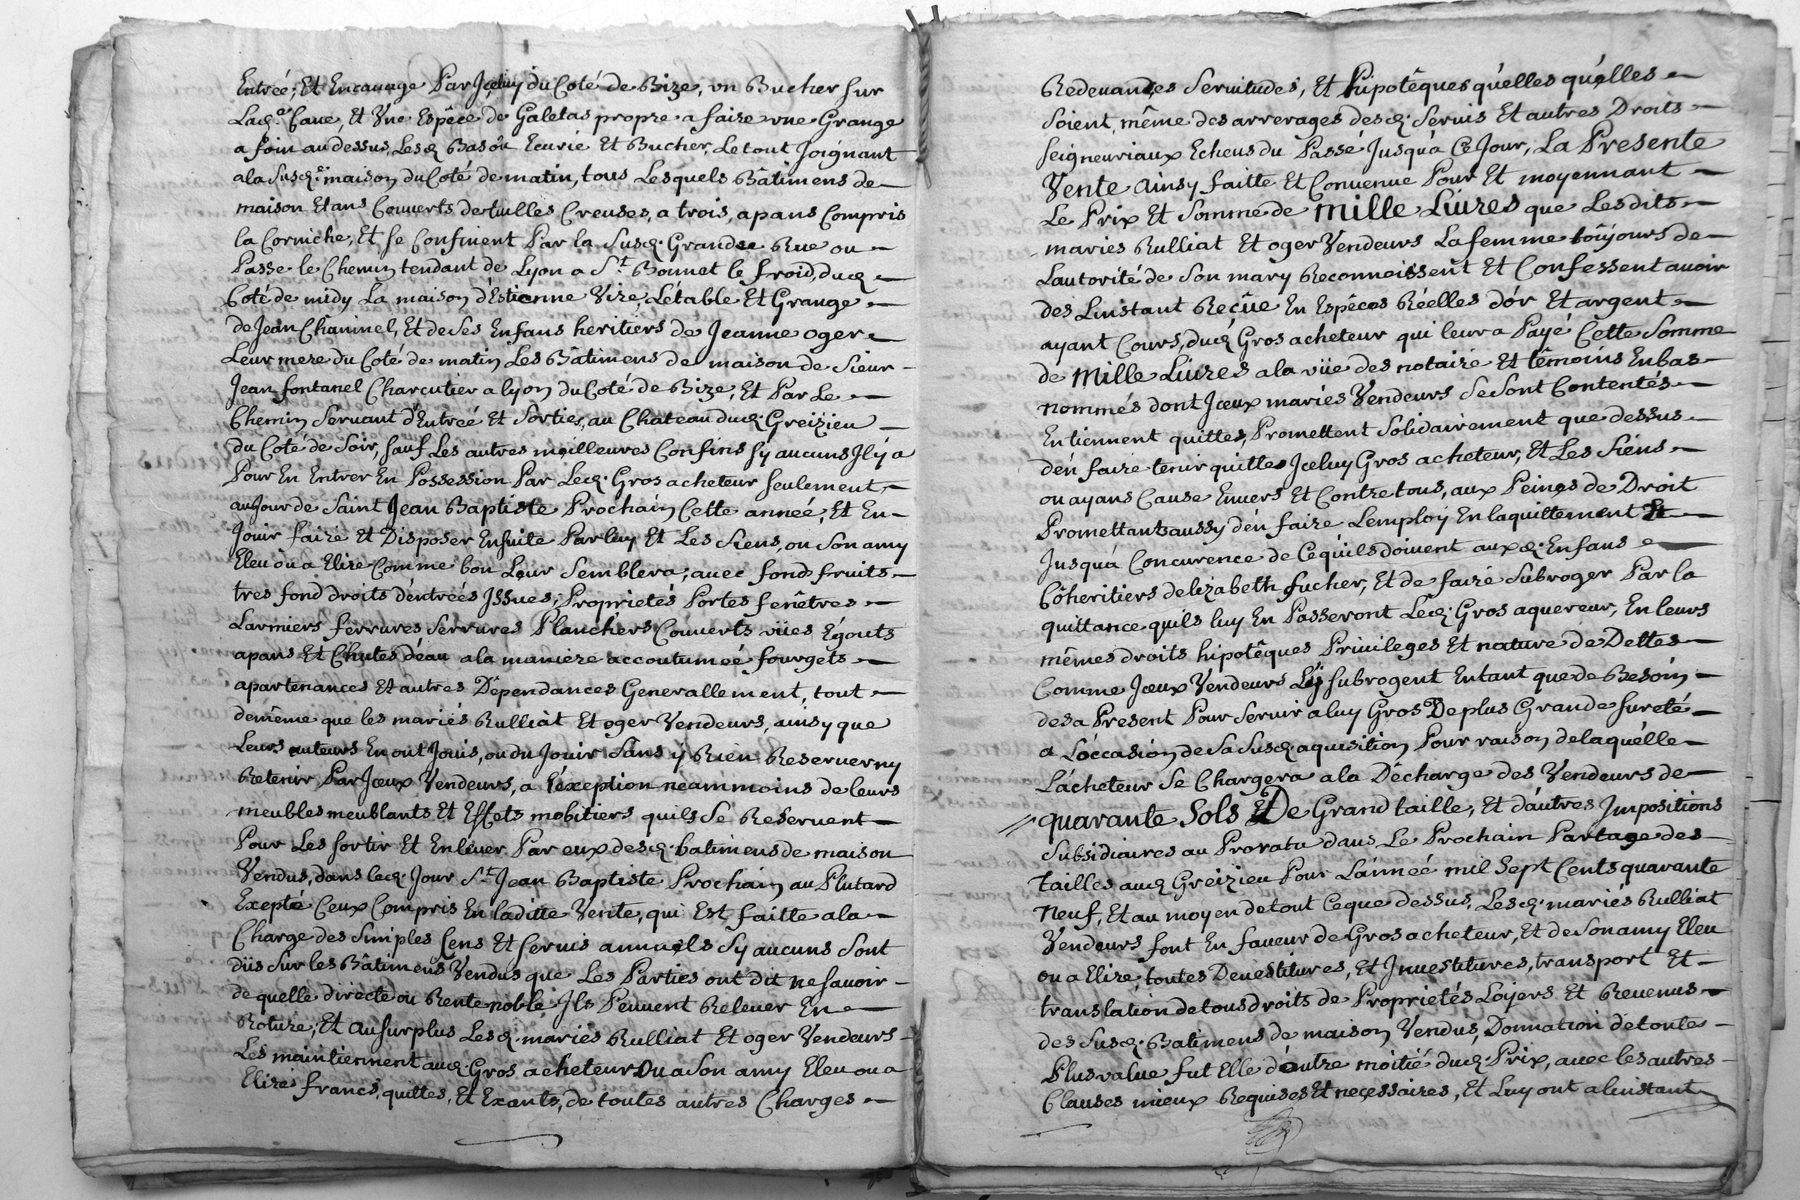 Entreé, Et Encauage Par Jceluy du Coté de Bize, vn Bucher sur
Lad.e Caue, Et Vne Espéce de Galetas propre a faire vne Grange
a foin audessus, Lesd. Basôn Ecurié Et Bucher, Le tout Joignant
ala Susd.e maison du Coté de matin, tous Lesquels Bâtimens de
maison Etans Couverts de tuilles Creuses, a trois, apans Compris
la Corniche, Et se Confinent Par la Susd. Grande Rue ou
Passe le Chemin tendant de Lyon a S.t Bonnet le froid, dud.
Coté de midy La maison d'Estienne Vize, L'étable Et Grange
de Jean Chaninel, Et de Ses Enfans heritiers de Jeanne oger
Leur mere du Coté de matin Les Bâtimens de maison de Sieur
Jean fontanel Charcutier a lyon du Coté de Bize, Et Par Le
Chemin Seruant d'Entreé Et Sorties, au Chateau dud. Greizieu
du Coté de Soir, sauf Les autres meilleures Confins sy aucuns Jl y a
Pour En Entrer En Possession Par Led. Gros acheteur seulement,
aujour de Saint Jean Baptiste Prochain Cette anneé, Et En
Jouir faire et Disposer Ensuite Par luy Et Les Siens, ou Son amy
Eleu où a Elire Comme bon Leur Semblera, auec fond fruits
tres fond droits d'entreés Jssues, Proprietes Portes fenêtres
Larmiers ferrures Serrures Planchers Couverts vües Egouts
apans Et Chutes deau ala maniere accoutumeé fourgets
apartenances Et autres Dépendances Generallement, tout
demême que les mariés Rulliat Et oger Vendeurs, ainsy que
Leurs auteurs En ont Jouis, ou du Jouir Sans y Rien Reseruer ny
Retenir Par Jceux Vendeurs, a l'éxeption neammoins de leurs
meubles meublants Et Effets mobiliers quils Se Reseruent
Pour Les sortir Et Enleuer Par eux desd. batimens de maison
Vendus, dans led. Jour S.t Jean Baptiste Prochain au Plutard
Exepté Ceux Compris En laditte Vente, qui Est faitte ala
Charge des Simples Cens Et seruis annuels Sy aucuns Sont
düs Sur les Bâtimens Vendus que Les Parties ont dit ne sauoir
de quelle directe ou Rente noble Jls Peuuent Releuer En
Roture, Et au surplus Lesd. mariés Rulliat Et oger Vendeurs
Les maintiennent aud. Gros acheteur Ou a Son amy Eleu ou a
Elire francs, quittes, Et Exants, de toutes autres Charges
Redeuances Seruitudes, Et hipotêques quelles quélles
Soient, même des arrerages desd. Seruis Et autres Droits
seigneuriaux Echeus du Passé Jusqu'a Ce Jour, La Presente
Vente Ainsy faitte Et Conuenue Pour Et moyennant
Le Prix Et Somme de Mille Liures que Lesdits
mariés Rulliat Et oger Vendeurs La femme toûjours de
Lautorité de Son mary Reconnoissent Et Confessent auoir
des Linstant Reçûe En Espêces Réelles d'or Et argent
ayant Cours, dud. Gros acheteur qui leur a Payé Cette Somme
de Mille Liures ala vüe des notaire Et têmoins En bas
nommés dont Jceux mariés Vendeurs Se Sont Contentés
En tiennent quittes, Promettent Solidairement que dessus
d'en faire tenir quittes Jceluy Gros acheteur, Et Les Siens
ou ayans Cause Enuers Et Contre tous, aux Peines de Droit
Promettant aussy d'en faire Lemploy En laquittement Et
Jusqu'à Concurence de Cequils doiuent aux d. Enfans
Côheritiers delizabeth fucher, Et de faire Subroger Par la
quittance quils luy En Passeront Led. Gros aquereur, En leurs
mêmes droits hipotêques Priuileges Et nature de Dettes
Comme Jceux Vendeurs Ly subrogent Entant que de Besoin
desa Present Pour Seruir a luy Gros De plus Grande sureté
a L'occasion de Sa Susd. aquisition Pour raison delaquelle
L'acheteur Se Chargera ala Décharge des Vendeurs de
quarante Sols De Grand taille, Et d'autres Jmpositions
Subsidiaires au Prorata dans Le Prochain Partage des
tailles aud. Greizieu Pour L'année mil Sept Cents quarante
neuf, Et au moyen de tout Ceque dessus, Lesd. mariés Rulliat
Vendeurs font En faueur de Gros acheteur, Et de Son amy Eleu
ou a Elire, toutes Deuestitures, Et Jnuestitures, transport Et
translation de tous droits de Proprietés Loijers Et Reuenus
des Susd. Batimens de maison Vendus, Donnation de toute
Plus value fut Elle d'outre moitié dud. Prix, auec les autres
Clauses mieux Requises Et necessaires, Et Luy ont alinstant